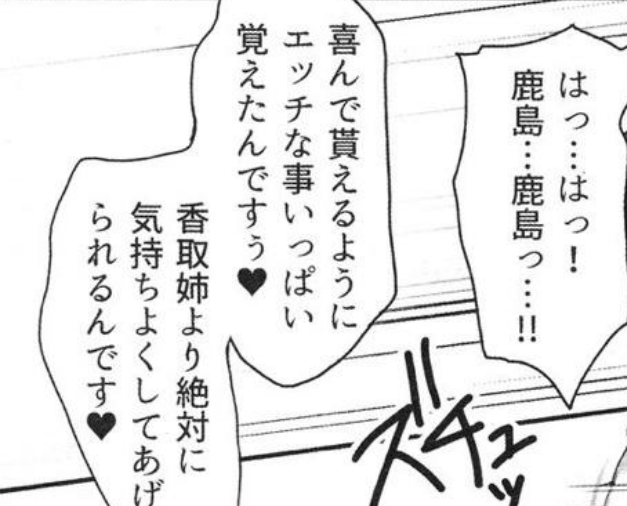 はっ…はっ！
鹿島…鹿島っ…!!
喜んで貰えるように
エッチな事いっぱい
覚えたんですぅ♥
香取姉より絶対に
気持ちよくしてあげ
られるんです♥
ズチュッ